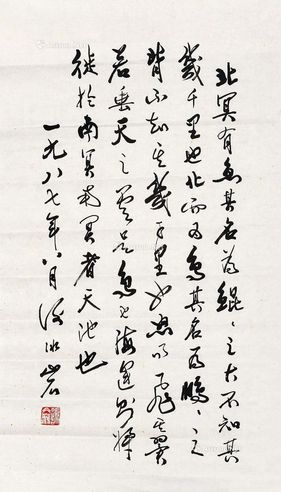 北冥有魚其名為鯤〻之大不知其
幾千里也化而為鳥其名為鵬〻之
背不知其幾千里也怒而飛其翼
若垂天之雲是鳥也海運則將
徙於南冥南冥者天池也
一九八七年八月